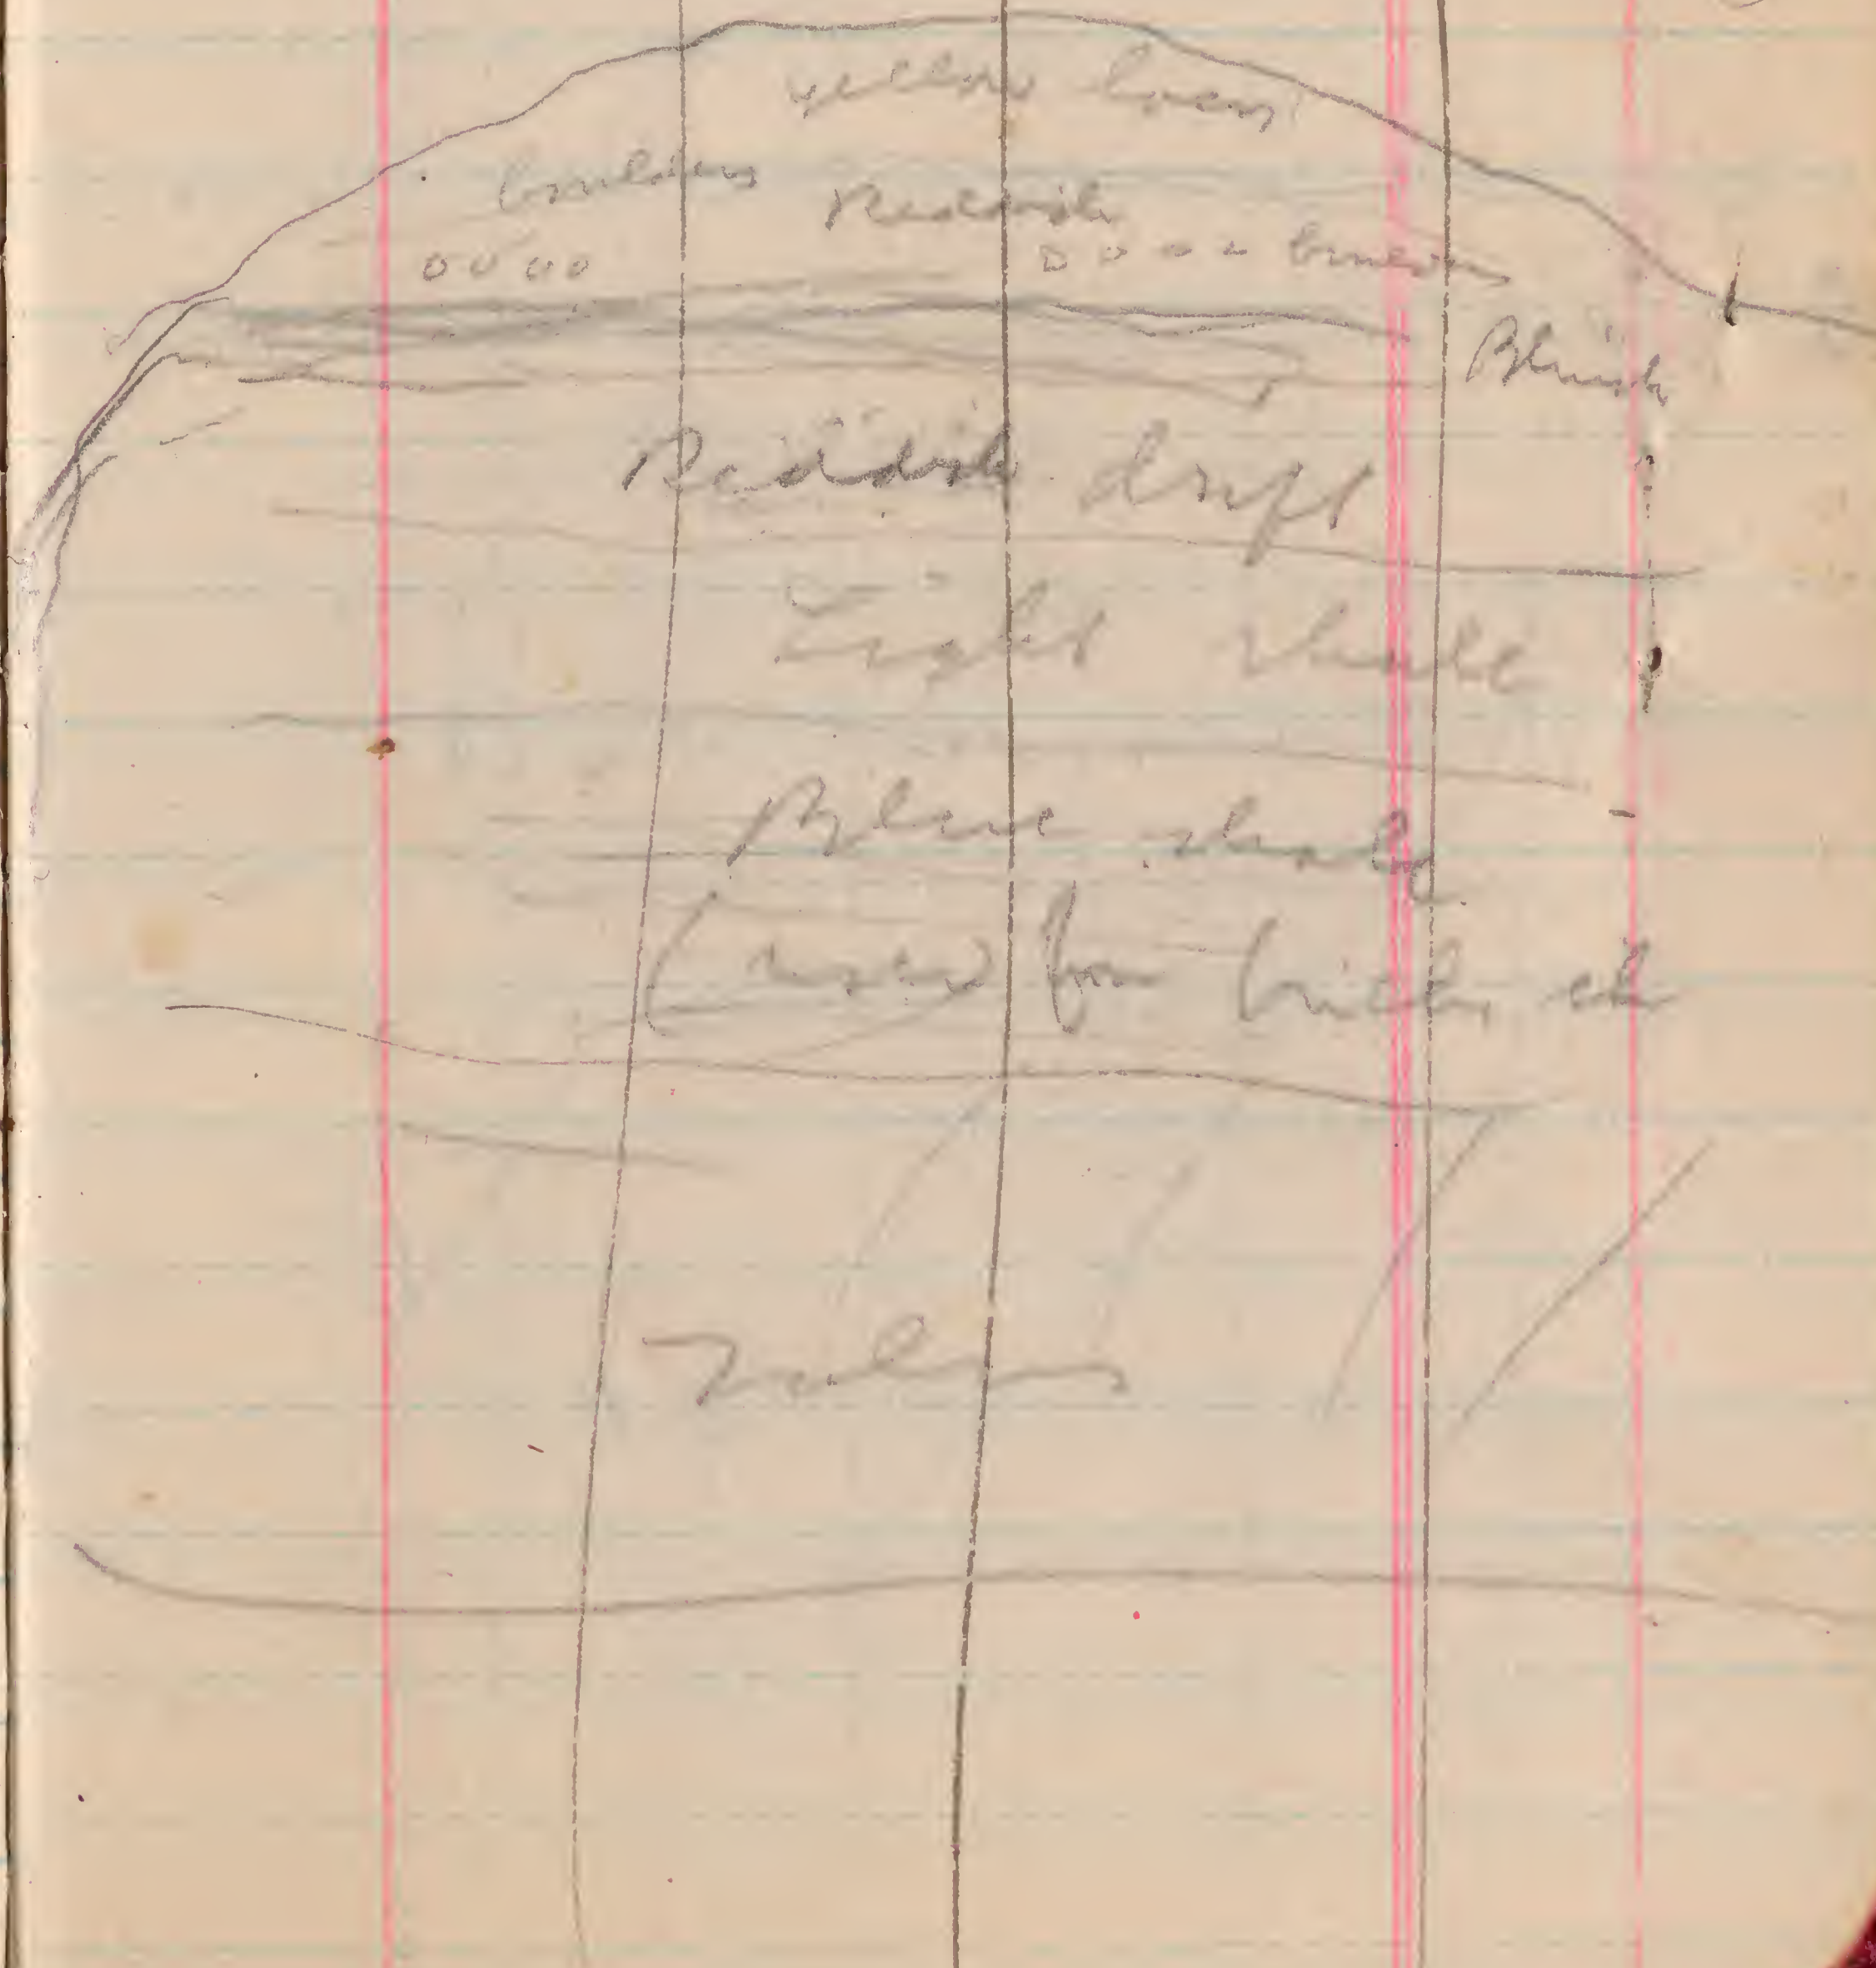 yellow loess
boulders
Reddish
Bluish
Reddish drift
Light shale
Blue shaly
(used for bricks etc
Talus